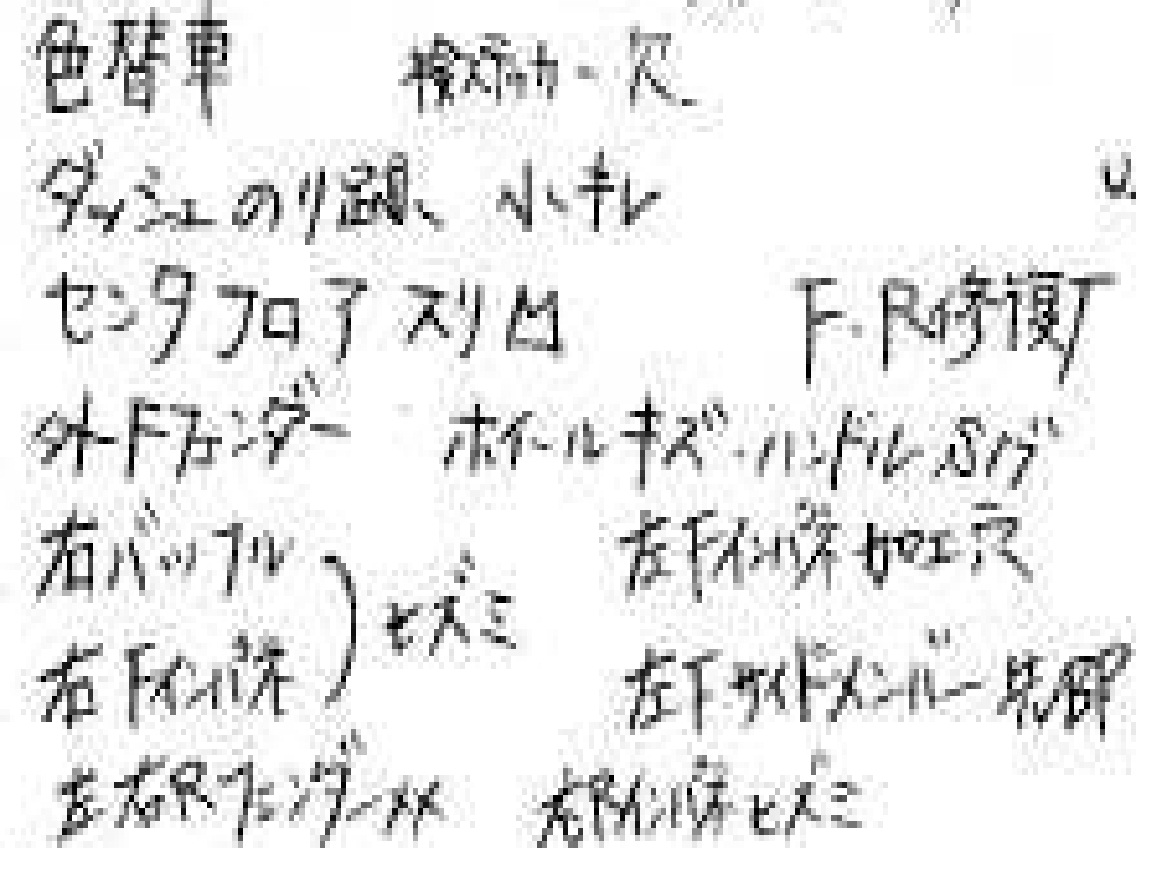 色替車 検ステッカー欠
ダッシュのり跡、小キレ
センタフロア スリ凹 F.R修復
外Fフェンダー ホイールキズ・ハンドルSリグ
右バッフル 左Fインパネ加工穴
ヒズミ
右Fインパネ 左Fサイドメンバー先部
左右Rフェンダー 右Rインパネヒズミ